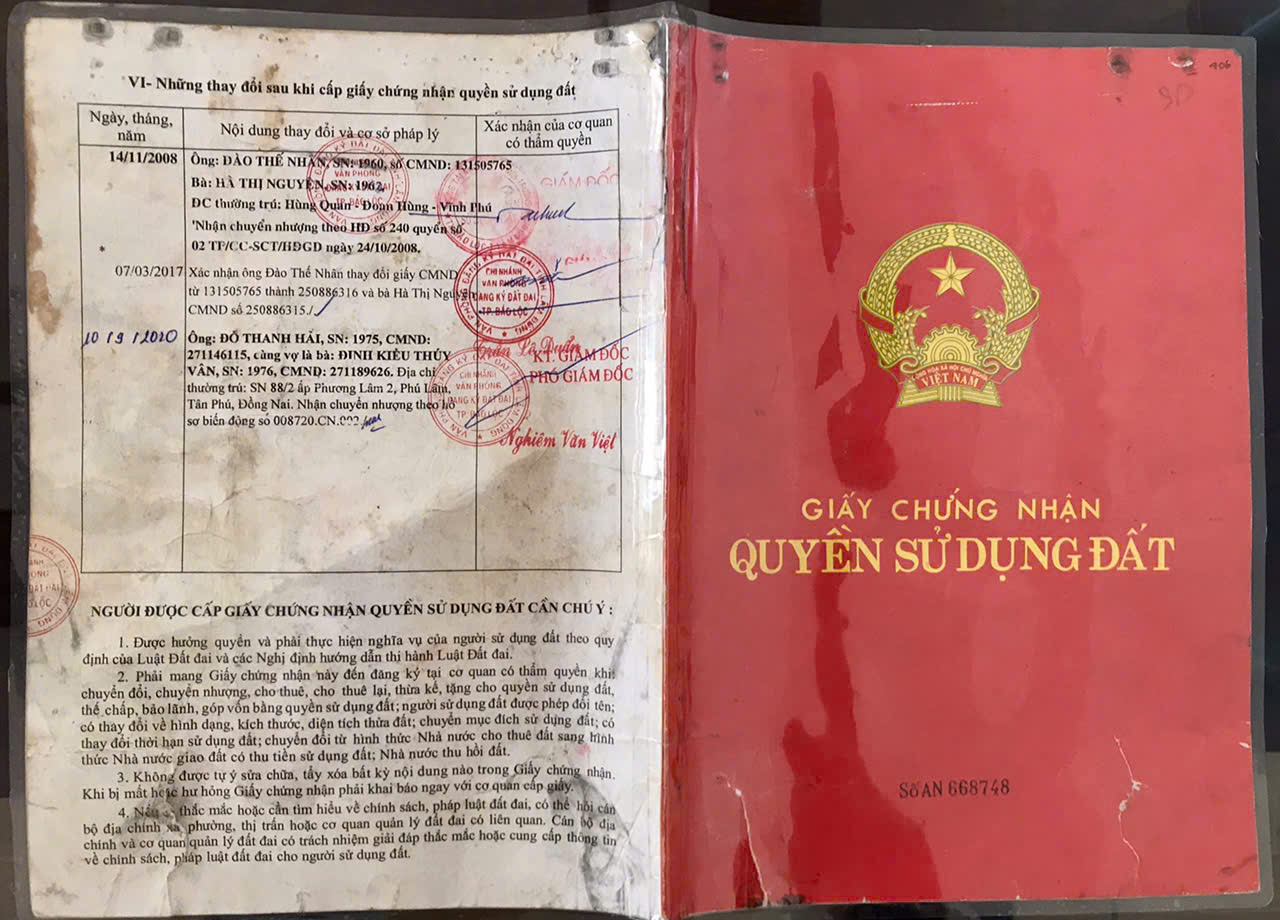 VI- Những thay đổi sau khi cấp giấy chứng nhận quyền sử dụng đất
Ngày, tháng, năm
Nội dung thay đổi và cơ sở pháp lý
Xác nhận của cơ quan có thẩm quyền
14/11/2008
Ông: ĐÀO THẾ NHÂN, SN: 1960, số CMND: 131505765
Bà: HÀ THỊ NGUYÊN, SN: 1962,
ĐC thường trú: Hùng Quân - Đoan Hùng - Vĩnh Phú
Nhận chuyển nhượng theo HĐ số 240 quyển số
02 TP/CC-SCT/HĐGD ngày 24/10/2008.
GIÁM ĐỐC
07/03/2017
Xác nhận ông Đào Thế Nhân thay đổi giấy CMND
từ 131505765 thành 250886316 và bà Hà Thị Nguyên
CMND số 250886315./
CHI NHÁNH
VĂN PHÒNG
ĐĂNG KÝ ĐẤT ĐAI
TP. BẢO LỘC
Trần Lê Duẩn
10/9/2020
Ông: ĐỖ THANH HẢI, SN: 1975, CMND:
271146115, cùng vợ là bà: ĐINH KIỀU THÚY
VÂN, SN: 1976, CMND: 271189626. Địa chỉ
thường trú: SN 88/2 ấp Phương Lâm 2, Phú Lâm,
Tân Phú, Đồng Nai. Nhận chuyển nhượng theo hồ
sơ biến động số 008720.CN.002
KT. GIÁM ĐỐC
PHÓ GIÁM ĐỐC
CHI NHÁNH
VĂN PHÒNG
ĐĂNG KÝ ĐẤT ĐAI
TP. BẢO LỘC
Nghiêm Văn Việt
NGƯỜI ĐƯỢC CẤP GIẤY CHỨNG NHẬN QUYỀN SỬ DỤNG ĐẤT CẦN CHÚ Ý :
1. Được hưởng quyền và phải thực hiện nghĩa vụ của người sử dụng đất theo quy
định của Luật Đất đai và các Nghị định hướng dẫn thi hành Luật Đất đai.
2. Phải mang Giấy chứng nhận này đến đăng ký tại cơ quan có thẩm quyền khi
chuyển đổi, chuyển nhượng, cho thuê, cho thuê lại, thừa kế, tặng cho quyền sử dụng đất,
thế chấp, bảo lãnh, góp vốn bằng quyền sử dụng đất; người sử dụng đất được phép đổi tên;
có thay đổi về hình dạng, kích thước, diện tích thửa đất; chuyển mục đích sử dụng đất; có
thay đổi thời hạn sử dụng đất; chuyển đổi từ hình thức Nhà nước cho thuê đất sang hình
thức Nhà nước giao đất có thu tiền sử dụng đất; Nhà nước thu hồi đất.
3. Không được tự ý sửa chữa, tẩy xóa bất kỳ nội dung nào trong Giấy chứng nhận.
Khi bị mất hoặc hư hỏng Giấy chứng nhận phải khai báo ngay với cơ quan cấp giấy.
4. Nếu có thắc mắc hoặc cần tìm hiểu về chính sách, pháp luật đất đai, có thể hỏi cán
bộ địa chính xã, phường, thị trấn hoặc cơ quan quản lý đất đai có liên quan. Cán bộ địa
chính và cơ quan quản lý đất đai có trách nhiệm giải đáp thắc mắc hoặc cung cấp thông tin
về chính sách, pháp luật đất đai cho người sử dụng đất.
406
SD
CỘNG HÒA XÃ HỘI CHỦ NGHĨA
VIỆT NAM
GIẤY CHỨNG NHẬN
QUYỀN SỬ DỤNG ĐẤT
Số AN 668748